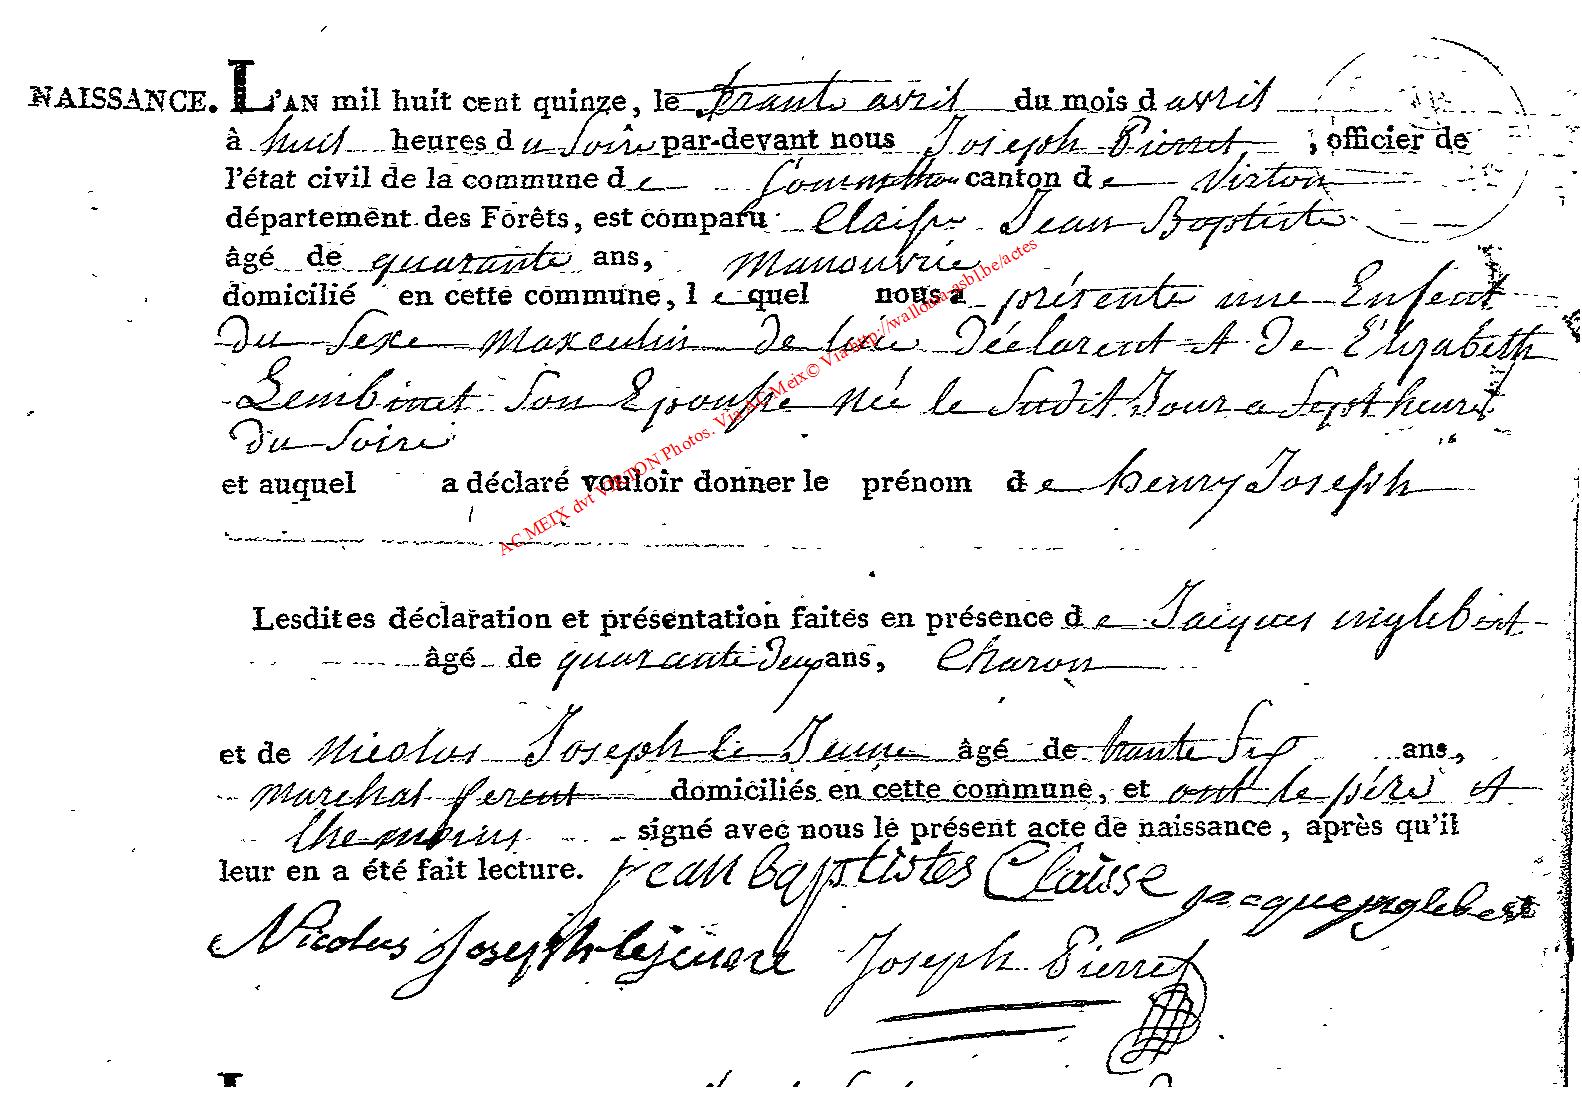 NAISSANCE. L'AN mil huit cent quinze, le trante avril du mois d avril
à huit heures du Soire par-devant nous Joseph Pierret, officier de
l'état civil de la commune de Sommethon canton de Virton
département des Forêts, est comparu Claisse Jean Baptiste
âgé de quarante ans, Manouvrie
domicilié en cette commune, lequel nous a présente une Enfent
Du Sexe Masculin de luie déclarent et De Elizabeth
son Epousse Née le Sudit Jour a Sept heures
Du Soire
et auquel a déclaré vouloir donner le prénom de henry Joseph
Lesdites déclaration et présentation faites en présence de Jacques inglebert
âgé de quarante deux ans, Charon
et de Nicolas Joseph le Jeune âgé de trante Six ans,
Marchal ferent domiciliés en cette commune, et ont le père et
signé avec nous le présent acte de naissance, après qu'il
leur en a été fait lecture. jean baptistes Claisse jacque jnglebert
Nicolas Joseph lejeune Joseph Pierret
AC MEIX dvt VIRTON Photos. Via AC Meix© Via http://wallonia-asbl.be/actes